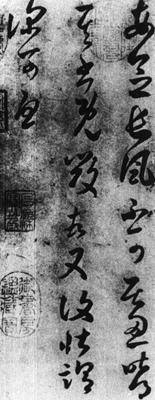 每念長風不可居忍昨
其書既毀頓又復壯溫
深可憂